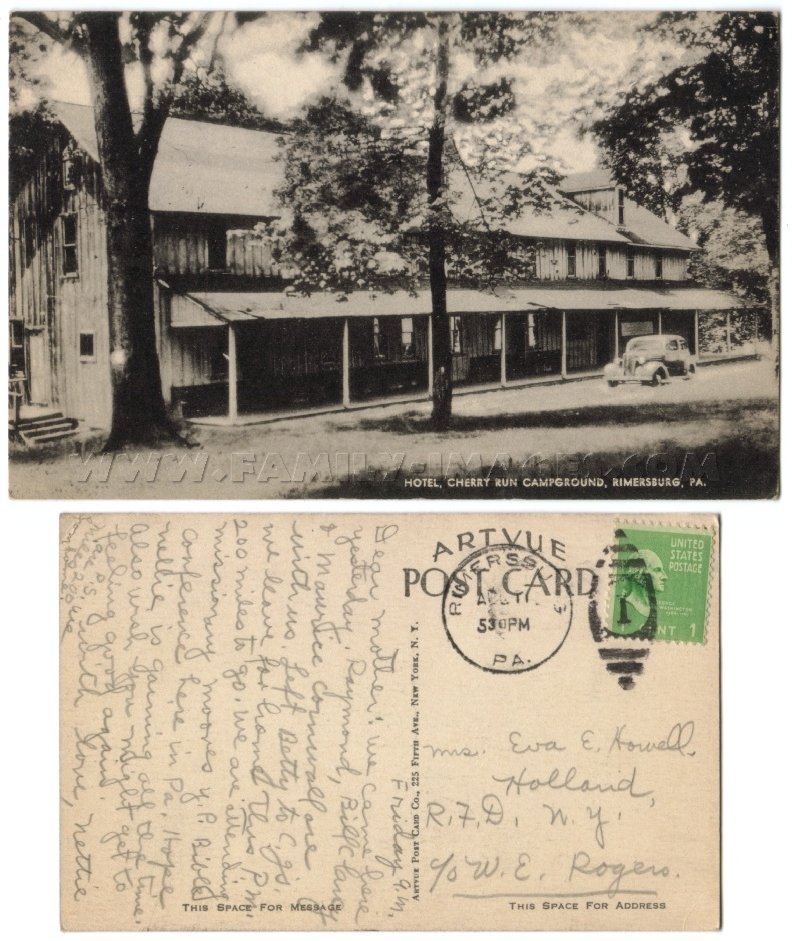 WWW.FAMILY-IMAGES.COM
HOTEL, CHERRY RUN CAMPGROUND, RIMERSBURG, PA.
ARTVUE
POST CARD
RIMERSBURG
AUG 11
530PM
PA.
1
UNITED
STATES
POSTAGE
GEORGE
WASHINGTON
CENT 1
Friday A.M.
Dear Mother: We came here
yesterday. Raymond, Bill
& Maurice Cornwall are
with us. Left Betty to
we leave for home this P.M.
200 miles to go. We are attending
missionary
conference here in Pa. Hope
Nellie is gaining all the time.
also wish you might get to
feeling good again.
with love, Nettie
ARTVUE POST CARD CO., 225 FIFTH AVE., NEW YORK, N. Y.
Mrs. Eva E. Howell.
Holland,
R.F.D. N.Y.
c/o W. E. Rogers.
THIS SPACE FOR MESSAGE
THIS SPACE FOR ADDRESS